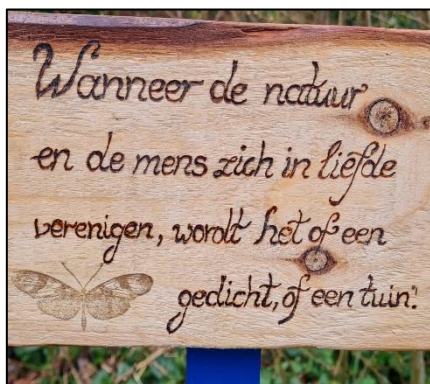 Wanneer de natuur
en de mens zich in liefde
verenigen, wordt het of een
gedicht, of een tuin.'